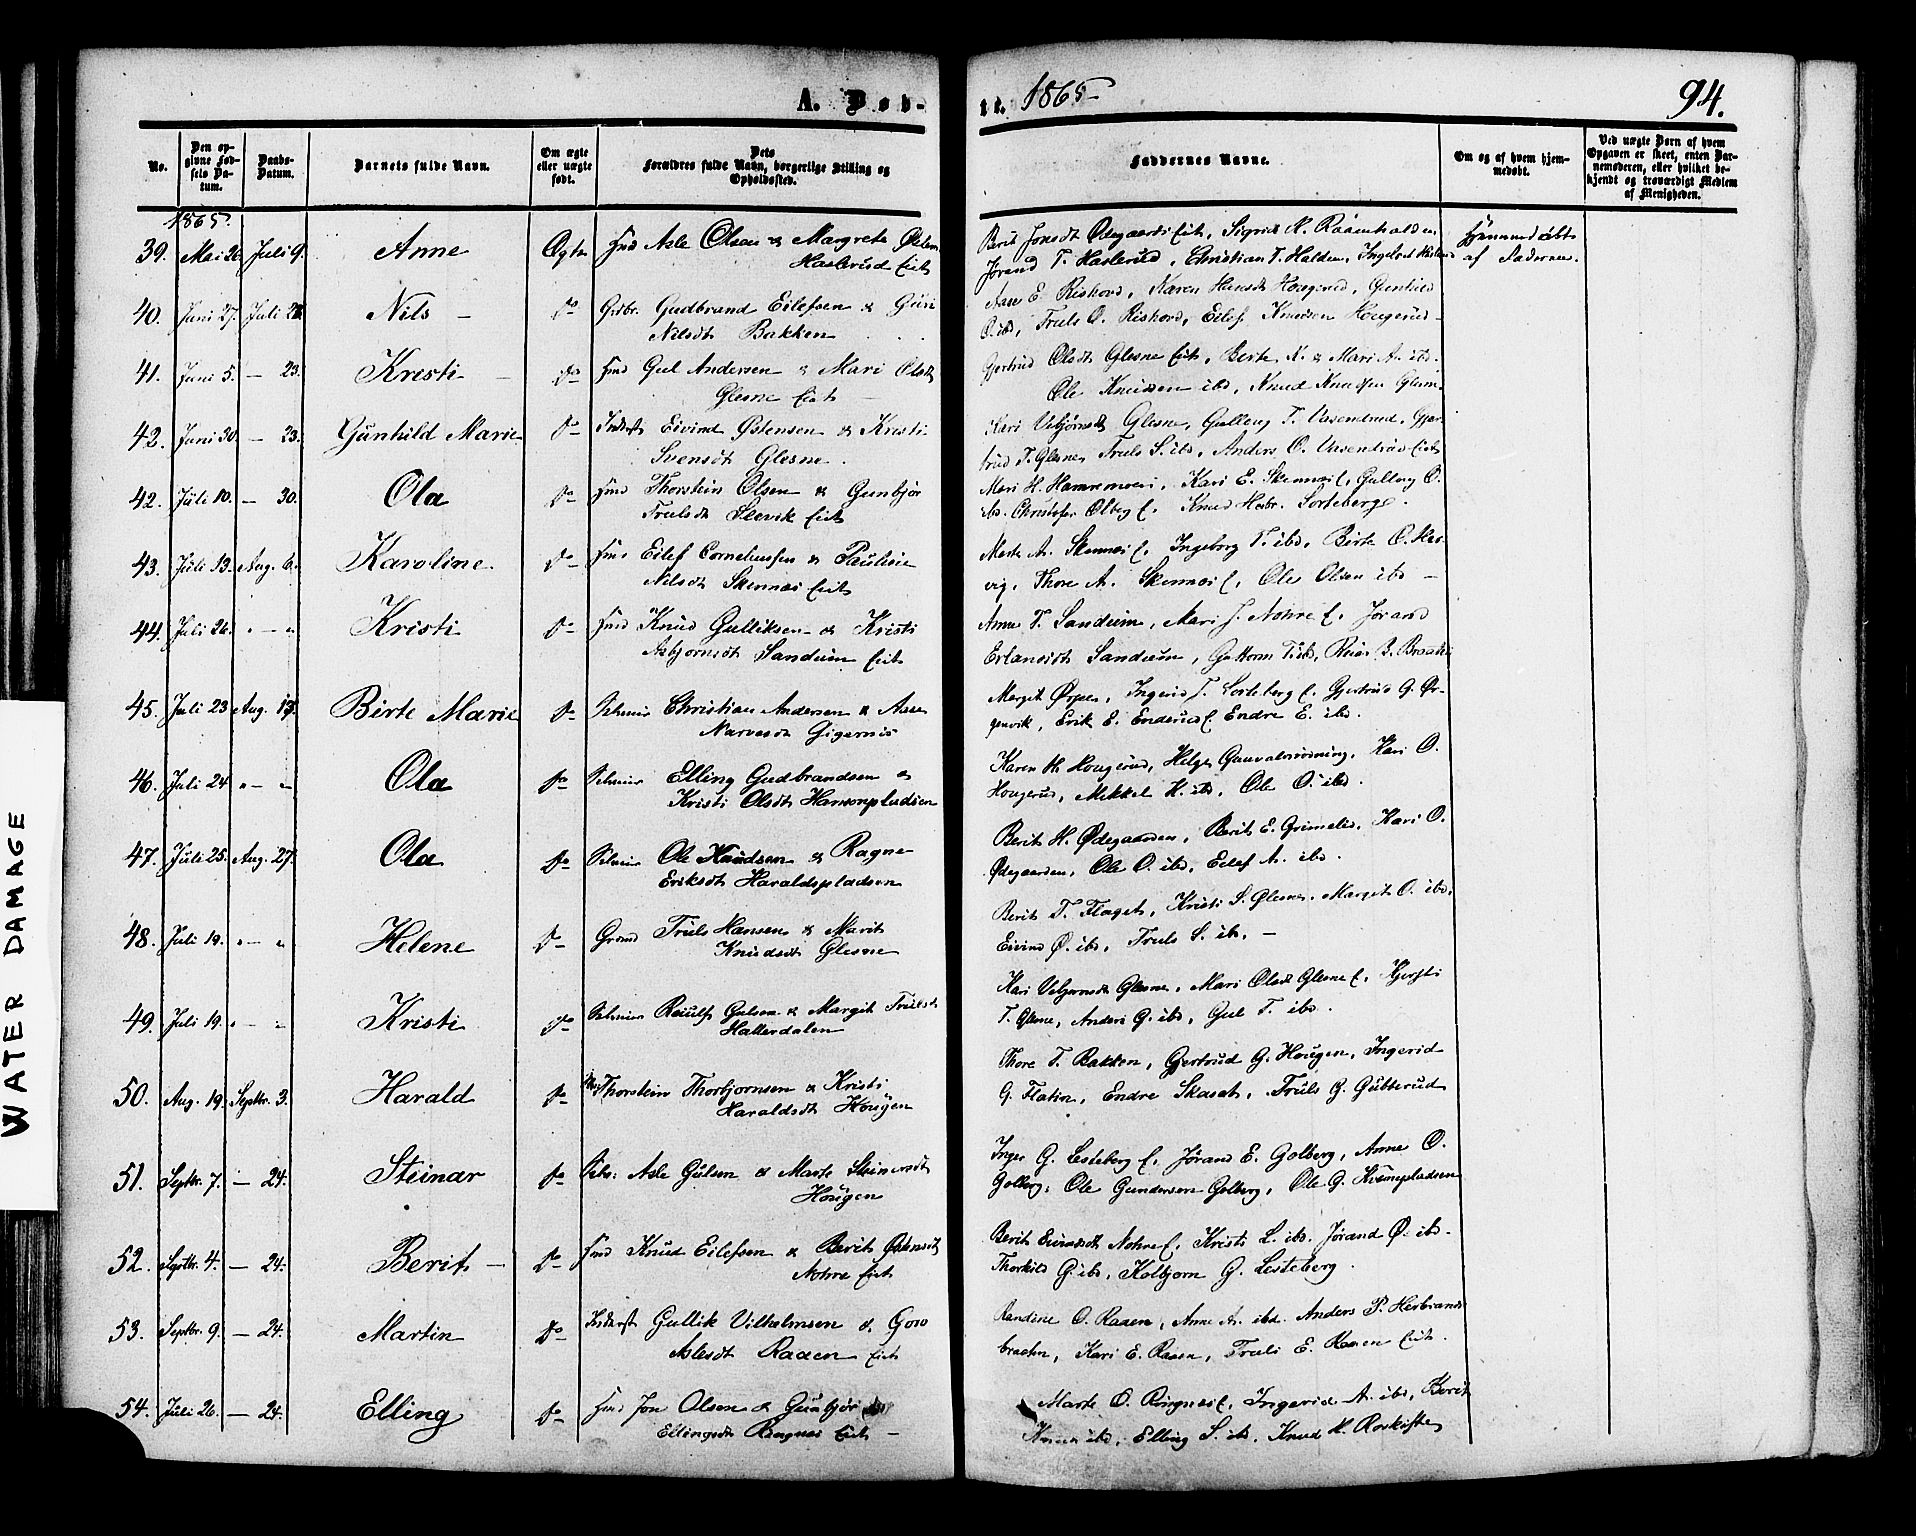 A. Døb-
te. 1865-
94.
No.
Den op-
givne Fød-
sels Da-
tum.
Daabs-
Datum.
Barnets fulde Navn.
Om ægte
eller uægte
født.
Dets
Forældres fulde Navn, borgerlige Stilling og
Opholdssted.
Faddernes Navne.
Om og af hvem hjem-
medøbt.
Ved uægte Børn af hvem
Opgaven er skeet, enten Bar-
nemoderen, eller hvilket be-
kjendt og troværdigt Medlem
af Menigheden.
1865.
39. Mai 26. Juli 9. Anne Ægte Hmd Asle Olsen & Margrete
Haslerud Eiet
Berit Jonsdt Ødegaards Eiet, Sigrid
Jørand T. Haslerud, Christian T. Halden, Ingebret
hjemmedøbt
af Faderen.
40. Juni 27. Juli Nils - do Gudbrand Eilefsen & Guri
Nilsdt Bakken
Aase E. Riskord, Karen Hougerud, Gunhild
O. ibd, Truls O. Riskord, Eilef Knudsen Hougerud-
41. Juni 5. - 23. Kristi - do Hmd Gul Andersen & Mari Olsdt
Glesne Eiet
Gjertrud Olsdt Glesne Eiet, Berte K. & Mari A. ibd.
Ole Knudsen ibd, Knud
42. Juni 30 - 23. Gunhild Marie do Inderst Eivind Østensen & Kristi
Svensdt Glesne.
Kari Vebjørnsdt Glesne, Gulleug T. Vasendrud, Gjer-
trud T. Glesne, Truls S. ibd, Anders O. Vasendrud Eiet
42. Juli 10. - 30. Ola do Hmd Thorstein Olsen & Gunbjør
Trulsdt Slevik Eiet
Mari H. Hammemoen, Kari E. Skinnes E, Gulleug O.
ibd. Christofer Olberg E. Knud Sorteberg.
43. Juli 13. Aug. 6. Karoline do Hmd Eilef Corneliussen & Pauline
Nilsdt Skinnes Eiet
Marte A. Skinnes E, Ingeborg T. ibd, Birte O. Her-
vig, Thore A. Skinnes E, Ole Olsen ibd -
44. Juli 26. " - " Kristi do Hmd Knud Gulliksen & Kristi
Asbjørnsdt Sandum Eiet
Anne T. Sandum, Mari J. Nohre E, Jørand
Erlandsdt Sandum, Guttorm T. ibd,
45. Juli 23 Aug. Birte Marie do Christian Andersen & Aase
Narvesdt Gigernis
Margit Ørpen, Ingerid T. Sorteberg E, Gjertrud G. Ør-
genvik, Erik E. Enderud E. Endre E. ibd.
46. Juli 24 " - " Ola do Elling Gudbrandsen &
Kristi Olsdt Hansenpladsen
Karen H. Hougerud, Helge Kari O.
Hougerud, Mikkel H. ibd, Ole O. ibd.
47. Juli 25. Aug. 27. Ola do Ole Knudsen & Ragne
Eriksdt Haraldspladsen
Berit H. Ødegaarden, Berit E. Grimelid, Kari O.
Ødegaarden, Ole O. ibd, Eilef A. ibd.
48. Juli 19. " - " Helene do Grmd Truls Hansen & Marit
Knudsdt Glesne
Berit T. Flaget, Kristi S. Glesne, Margit O. ibd,
Eivind Ø. ibd, Truls S. ib. -
49. Juli 19. " - " Kristi do Gulsen & Margit Trulsdt
Hallerdalen
Kari Vebjørnsdt Glesne, Mari Olsdt Glesne E. Kjersti
T. Glesne, Anders G. ibd, Gul T. ibd.
50. Aug. 19. Septbr. 3. Harald do Thorstein Thorbjørnsen & Kristi
Haraldsdt Hougen
Thore T. Bakken, Gjertrud G. Hougen, Ingerid
G. Flatin, Endre Skasat, Truls G. Gubberud
51. Septbr. 7. - 24. Steinar do Asle Gulsen & Marte Steinersdt
Hougen
Inger G. Lesteberg E. Jørand E. Golberg, Anne O.
Golberg, Ole Gundersen Golberg, Ole G. Kvernpladsen
52. Septbr. 4. - 24. Berit - do Hmd Knud Eilefsen & Berit Østensdt
Nohre Eiet
Berit Eivindsdt Nohre E. Kristi L. ibd. Jørand Ø. ibd-
Thorkild G. ibd, Kolbjørn G. Lesteberg.
53. Septbr. 9. - 24. Martin do Inderst Gullik Vilhelmsen & Goro
Aslesdt Raaen Eiet
Randine O. Raaen, Anne A. ibd. Anders P. Herbrands-
braaten, Kari E. Raaen, Truls E. Raaen Eiet.
54. Juli 26. - 24. Elling do Hmd Jon Olsen & Gunbjør
Ellingsdt Ringnes Eiet -
Marte O. Ringnes E, Ingerid A. ibd, Berit
ibd, Elling S. ibd, Knud H. Roskifte
WATER DAMAGE